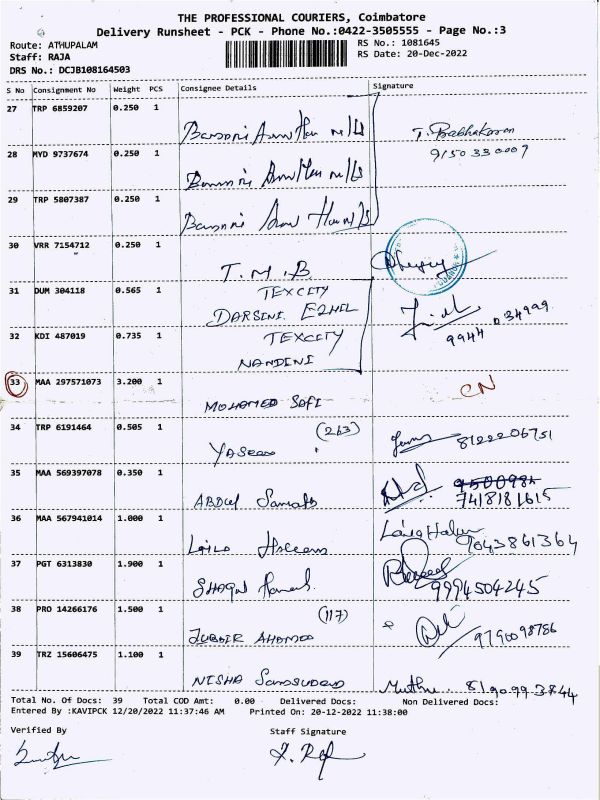 THE PROFESSIONAL COURIERS, Coimbatore
Delivery Runsheet - PCK - Phone No.:0422-3505555 - Page No.:3
Route: ATHUPALAM
RS No.: 1081645
Staff: RAJA
RS Date: 20-Dec-2022
DRS No.: DCJB108164503
S No Consignment No Weight PCS Consignee Details Signature
27 TRP 6859207 0.250 1
T. Prabhakaran
9150330007
28 MYD 9737674 0.250 1
29 TRP 5807387 0.250 1
30 VRR 7154712 0.250 1
T.M.B
31 DUM 304118 0.565 1 TEXCITY
DARSINI EZHIL
9944 034999
32 KDI 487019 0.735 1 TEXCITY
NANDINI
33 MAA 297571073 3.200 1
MOHAMED SAFI
CN
34 TRP 6191464 0.505 1 (263)
YASEEN
8122206751
35 MAA 569397078 0.350 1
ABDUL
7418181615
36 MAA 567941014 1.000 1
Laila
9043861364
37 PGT 6313830 1.900 1
9994504245
38 PRO 14266176 1.500 1 (117)
ZUBAIR AHAMED
9790098786
39 TRZ 15606475 1.100 1
NISHA
Muthu 8190993844
Total No. Of Docs: 39 Total COD Amt: 0.00 Delivered Docs: Non Delivered Docs:
Entered By :KAVIPCK 12/20/2022 11:37:46 AM Printed On: 20-12-2022 11:38:00
Verified By Staff Signature